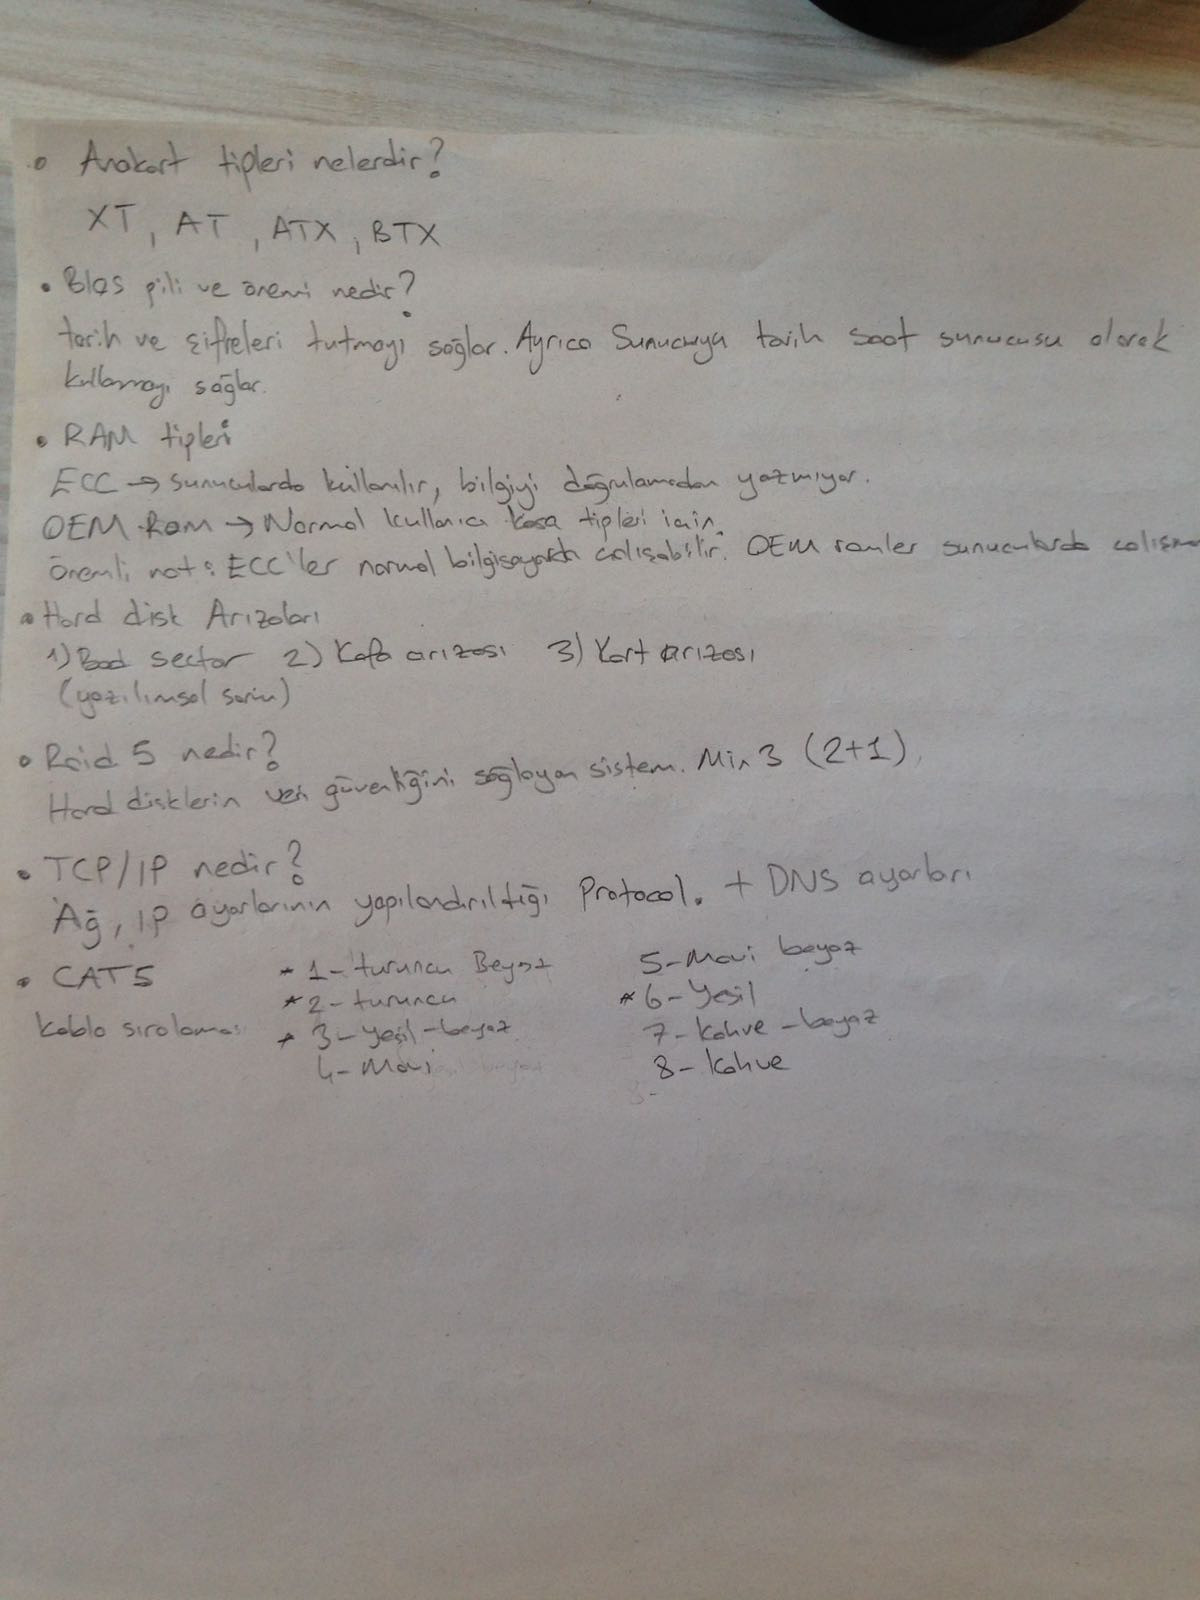 • Anakart tipleri nelerdir?
XT, AT, ATX, BTX
• BIOS pili ve önemi nedir?
tarih ve şifreleri tutmayı sağlar. Ayrıca Sunucuya tarih saat sunucusu olarak
kullanmayı sağlar.
• RAM tipleri
ECC → sunucularda kullanılır, bilgiyi doğrulamadan yazmıyor.
OEM Ram → Normal kullanıcı kasa tipleri için.
Önemli not: ECC'ler normal bilgisayarda çalışabilir. OEM ramler sunucularda
• Hard disk Arızaları
1) Bad sector 2) Kafa arızası 3) Kart arızası
(yazılımsal sorun)
• Raid 5 nedir?
Hard disklerin veri güvenliğini sağlayan sistem. Min 3 (2+1)
• TCP/IP nedir?
Ağ, IP ayarlarının yapılandırıldığı Protocol. + DNS ayarları
• CAT5
kablo sıralaması
* 1- turuncu Beyaz
* 2- turuncu
* 3- Yeşil-beyaz
4- Mavi
5- Mavi beyaz
* 6- Yeşil
7- Kahve-beyaz
8- Kahve